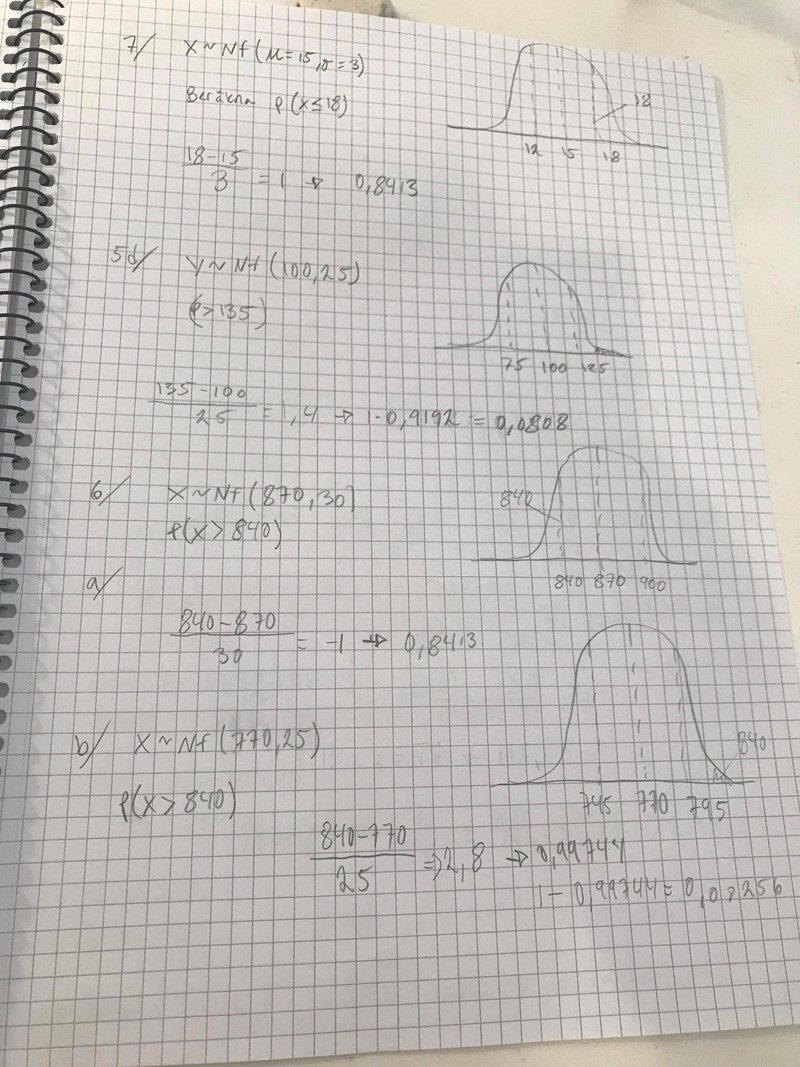 7/ X~Nf(μ=15,σ=3)
Beräkna p(x≤18)
18
12 15 18
18-15
3
=1 → 0,8413
5d/ Y~Nf(100,25)
(P>135)
75 100 125
135-100
25
=1,4 → 1-0,9192 = 0,0808
6/ X~Nf(870,30)
P(X>840)
840
840 870 900
a/
840-870
30
= -1 → 0,8413
b/ X~Nf(770,25)
P(X>840)
840
745 770 795
840-770
25
⇒2,8 → 0,99744
1-0,99744=0,00256